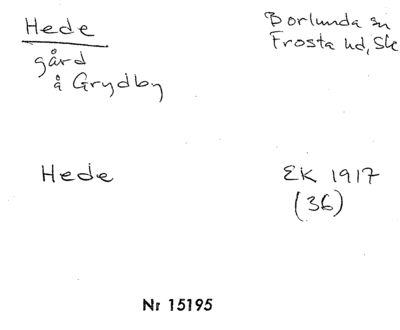 Hede
Borlunda sn
Frosta hd, Sk
gård
å Grydby
Hede
EK 1917
(36)
Nr 15195